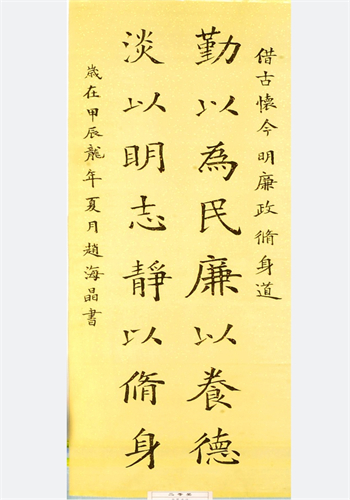 借古懷今明廉政脩身道
勤以為民廉以養德
淡以明志靜以脩身
歲在甲辰龍年夏月趙海晶書